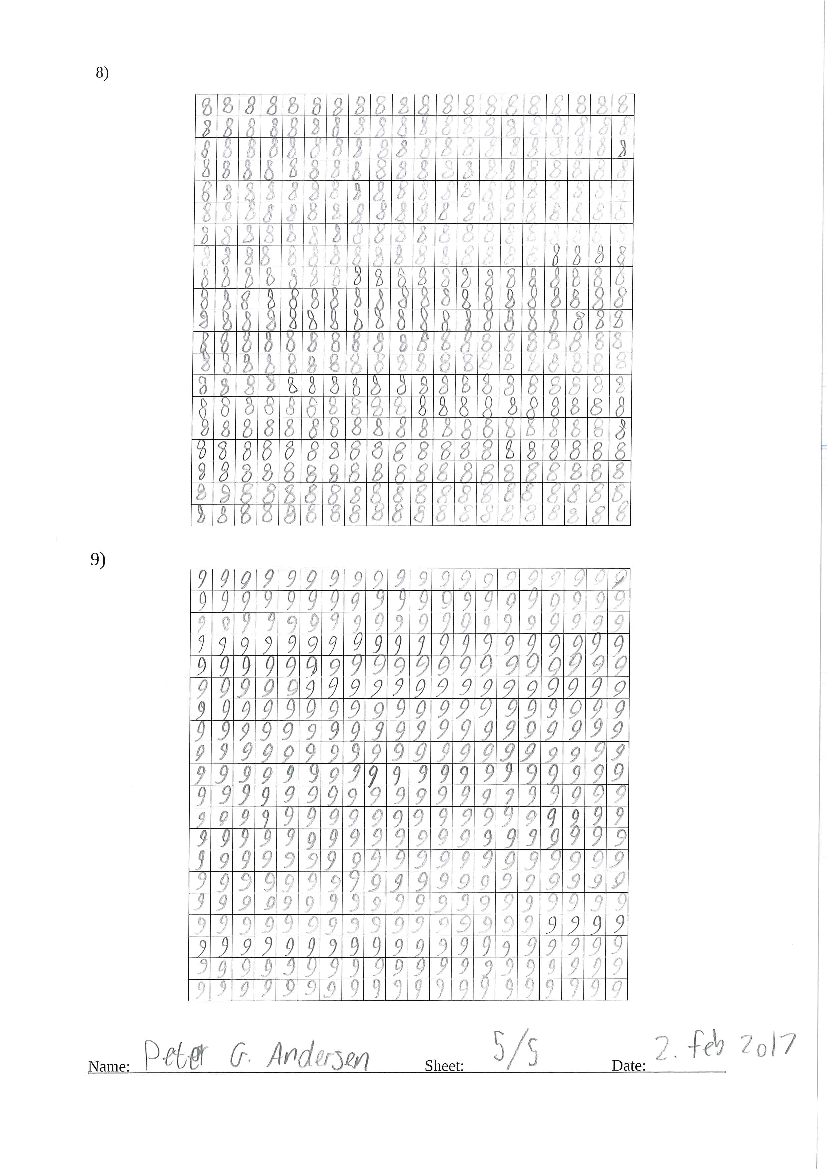 8)
8 8 8 8 8 8 8 8 8 8 8 8 8 8 8 8 8 8 8 8
8 8 8 8 8 8 8 8 8 8 8 8 8 8 8 8 8 8 8 8
8 8 8 8 8 8 8 8 8 8 8 8 8 8 8 8 8 8 8 8
8 8 8 8 8 8 8 8 8 8 8 8 8 8 8 8 8 8 8 8
8 8 8 8 8 8 8 8 8 8 8 8 8 8 8 8 8 8 8 8
8 8 8 8 8 8 8 8 8 8 8 8 8 8 8 8 8 8 8 8
8 8 8 8 8 8 8 8 8 8 8 8 8 8 8 8 8 8 8 8
8 8 8 8 8 8 8 8 8 8 8 8 8 8 8 8 8 8 8 8
8 8 8 8 8 8 8 8 8 8 8 8 8 8 8 8 8 8 8 8
8 8 8 8 8 8 8 8 8 8 8 8 8 8 8 8 8 8 8 8
8 8 8 8 8 8 8 8 8 8 8 8 8 8 8 8 8 8 8 8
8 8 8 8 8 8 8 8 8 8 8 8 8 8 8 8 8 8 8 8
8 8 8 8 8 8 8 8 8 8 8 8 8 8 8 8 8 8 8 8
8 8 8 8 8 8 8 8 8 8 8 8 8 8 8 8 8 8 8 8
8 8 8 8 8 8 8 8 8 8 8 8 8 8 8 8 8 8 8 8
8 8 8 8 8 8 8 8 8 8 8 8 8 8 8 8 8 8 8 8
8 8 8 8 8 8 8 8 8 8 8 8 8 8 8 8 8 8 8 8
8 8 8 8 8 8 8 8 8 8 8 8 8 8 8 8 8 8 8 8
8 8 8 8 8 8 8 8 8 8 8 8 8 8 8 8 8 8 8 8
8 8 8 8 8 8 8 8 8 8 8 8 8 8 8 8 8 8 8 8
9)
9 9 9 9 9 9 9 9 9 9 9 9 9 9 9 9 9 9 9 9
9 9 9 9 9 9 9 9 9 9 9 9 9 9 9 9 9 9 9 9
9 9 9 9 9 9 9 9 9 9 9 9 9 9 9 9 9 9 9 9
9 9 9 9 9 9 9 9 9 9 9 9 9 9 9 9 9 9 9 9
9 9 9 9 9 9 9 9 9 9 9 9 9 9 9 9 9 9 9 9
9 9 9 9 9 9 9 9 9 9 9 9 9 9 9 9 9 9 9 9
9 9 9 9 9 9 9 9 9 9 9 9 9 9 9 9 9 9 9 9
9 9 9 9 9 9 9 9 9 9 9 9 9 9 9 9 9 9 9 9
9 9 9 9 9 9 9 9 9 9 9 9 9 9 9 9 9 9 9 9
9 9 9 9 9 9 9 9 9 9 9 9 9 9 9 9 9 9 9 9
9 9 9 9 9 9 9 9 9 9 9 9 9 9 9 9 9 9 9 9
9 9 9 9 9 9 9 9 9 9 9 9 9 9 9 9 9 9 9 9
9 9 9 9 9 9 9 9 9 9 9 9 9 9 9 9 9 9 9 9
9 9 9 9 9 9 9 9 9 9 9 9 9 9 9 9 9 9 9 9
9 9 9 9 9 9 9 9 9 9 9 9 9 9 9 9 9 9 9 9
9 9 9 9 9 9 9 9 9 9 9 9 9 9 9 9 9 9 9 9
9 9 9 9 9 9 9 9 9 9 9 9 9 9 9 9 9 9 9 9
9 9 9 9 9 9 9 9 9 9 9 9 9 9 9 9 9 9 9 9
9 9 9 9 9 9 9 9 9 9 9 9 9 9 9 9 9 9 9 9
9 9 9 9 9 9 9 9 9 9 9 9 9 9 9 9 9 9 9 9
Name: Peter G. Andersen Sheet: 5/5 Date: 2. feb 2017